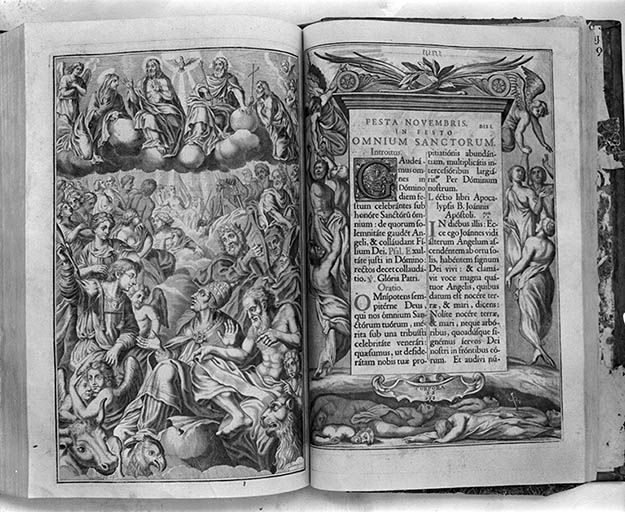 FESTA NOVEMBRIS.
DIE I.
IN FESTO
OMNIUM SANCTORUM.
Introitus.
GAudeá-
mus om-
nes in
Dómino
diem fe-
stum celebrántes sub
honóre Sanctórū óm-
nium: de quorum so-
lemnitáte gaudēt An-
geli, & colláudant Fí-
lium Dei. Psal. Exul-
táte justi in Dómino:
rectos decet collaudá-
tio. ℣. Glória Patri.
Oratio.
OMnípotens sem-
pitérne Deus,
qui nos ómnium San-
ctórum tuórum, mé-
rita sub una tribuísti
celebritáte venerári:
quǽsumus, ut desíde-
rátam nobis tuæ pro-
pitiatiónis abundán-
tiam, multiplicátis in-
tercessóribus largiá-
ris. Per Dóminum
nostrum.
Léctio libri Apoca-
lypsis B. Joánnis
Apóstoli.
IN diébus illis: Ec-
ce ego Joánnes vidi
álterum Angelum as-
cendéntem ab ortu so-
lis, habéntem signum
Dei vivi: & clamá-
vit voce magna quá-
tuor Angelis, quibus
datum est nocére ter-
ræ, & mari, dicens:
Nolíte nocére terræ,
& mari, neque arbó-
ribus, quoadúsque si-
gnémus servos Dei
nostri in fróntibus eó-
rum. Et audívi nú-
CORPORA